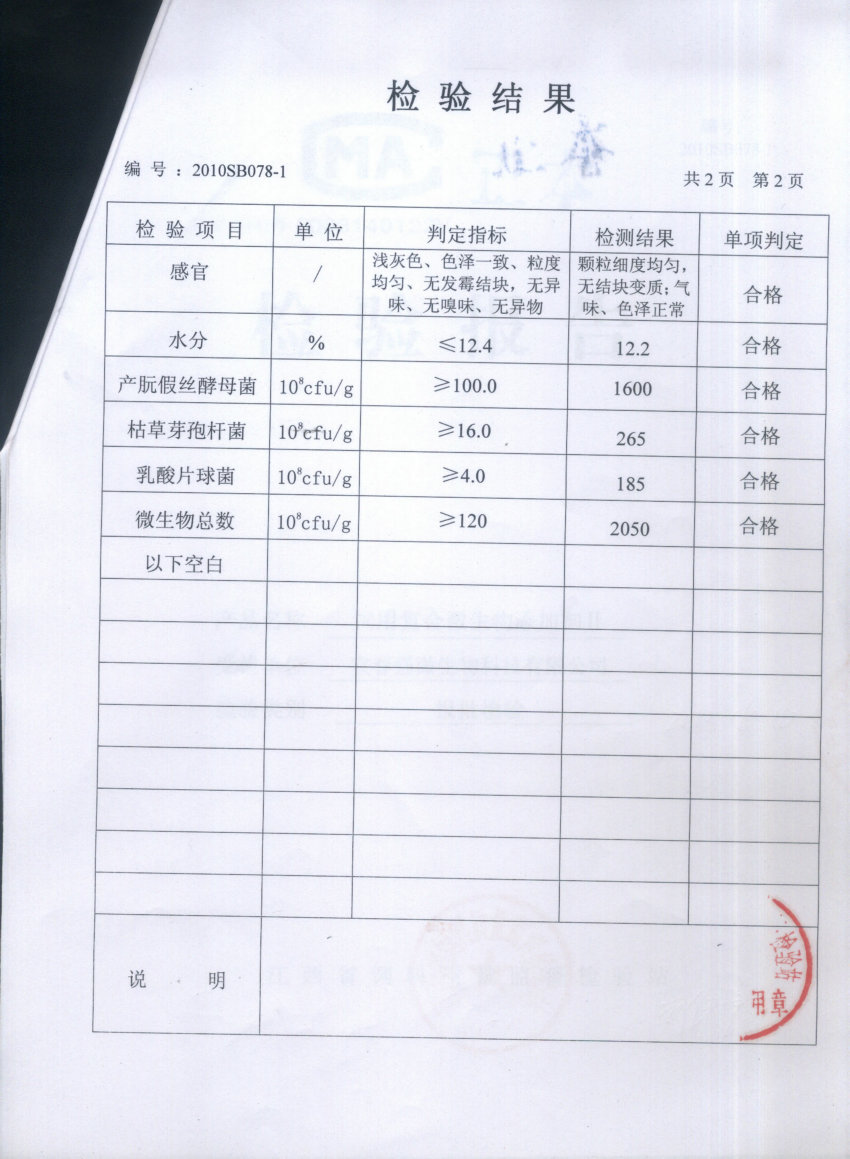 检验结果
编 号：2010SB078-1
共2页 第2页
检验项目 单位 判定指标 检测结果 单项判定
感官 / 浅灰色、色泽一致、粒度均匀、无发霉结块，无异味、无嗅味、无异物 颗粒细度均匀，无结块变质；气味、色泽正常 合格
水分 % ≤12.4 12.2 合格
产朊假丝酵母菌 10⁸cfu/g ≥100.0 1600 合格
枯草芽孢杆菌 10⁸cfu/g ≥16.0 265 合格
乳酸片球菌 10⁸cfu/g ≥4.0 185 合格
微生物总数 10⁸cfu/g ≥120 2050 合格
以下空白
说 明
用章